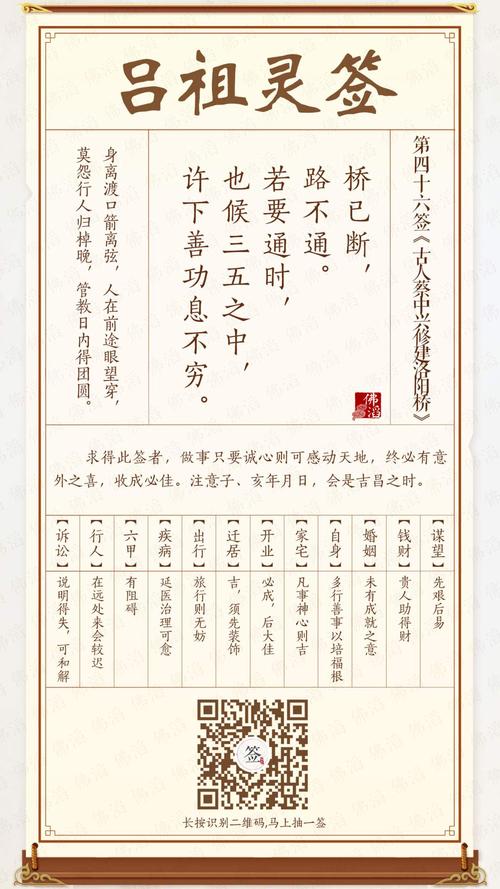 吕祖灵签
第四十六签《古人蔡中兴修建洛阳桥》
桥已断，
路不通。
若要通时，
也候三五之中，
许下善功息不穷。
身离渡口箭离弦，人在前途眼望穿，
莫怨行人归棹晚，管教日内得团圆。
佛滔
求得此签者，做事只要诚心则可感动天地，终必有意
外之喜，收成必佳。注意子、亥年月日，会是吉昌之时。
【谋望】先艰后易
【钱财】贵人助得财
【婚姻】未有成就之意
【自身】多行善事以培福根
【家宅】凡事神心则吉
【开业】必成，后大佳
【迁居】吉，须先装饰
【出行】旅行则无妨
【疾病】延医治理可愈
【六甲】有阻碍
【行人】在远处来会较迟
【诉讼】说明得失，可和解
签
长按识别二维码,马上抽一签